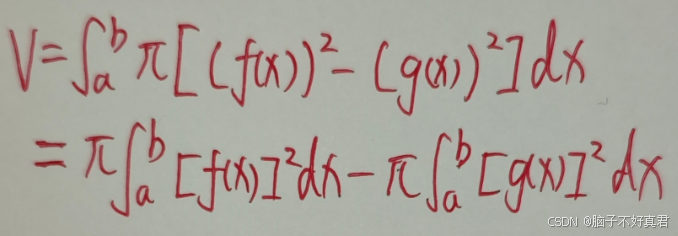 V=∫ₐᵇπ[(f(x))²-(g(x))²]dx
=π∫ₐᵇ[f(x)]²dx-π∫ₐᵇ[g(x)]²dx
CSDN @脑子不好真君